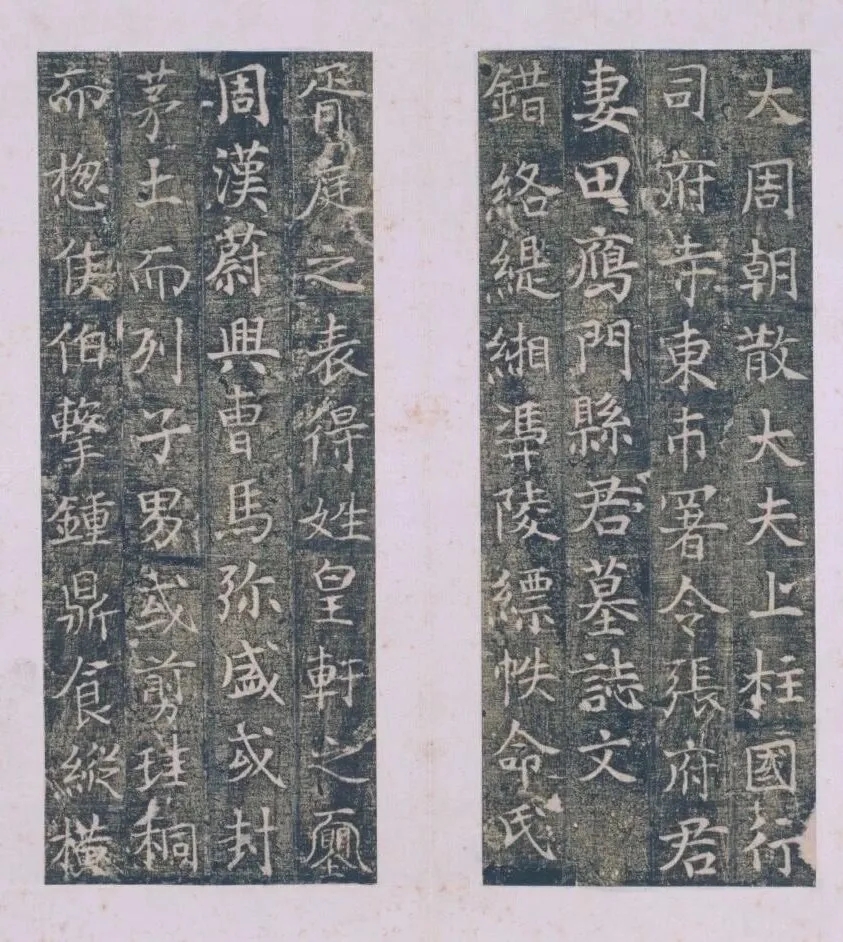 大周朝散大夫上柱國行
司府寺東市署令張府君
妻田鴈門縣君墓誌文
錯絡緹緗潭陵縹帙命氏
胥庭之表得姓皇軒之
周漢蔚興曹馬弥盛或封
茅土而列子男或剪珪桐
而揔侯伯擊鍾鼎食縱橫